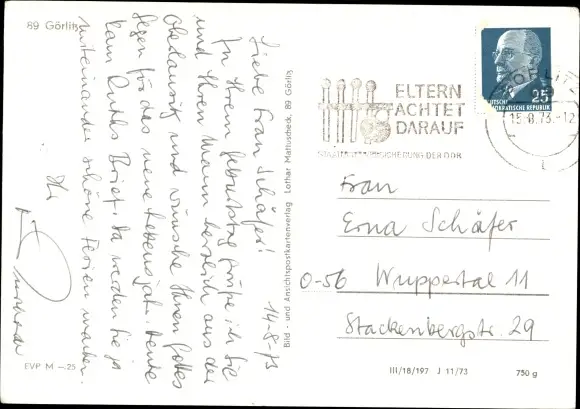 89 Görlitz
14-8-73
Liebe Frau Schäfer!
Zu Ihrem Geburtstag grüße ich Sie
und Ihren Mann herzlich aus der
Oberlausitz und wünsche Ihnen Gottes
Segen für das neue Lebensjahr. Heute
kam Ruths Brief. Da werden Sie ja
miteinander schöne Ferien machen.
Ihr
EVP M —.25
Bild - und Ansichtspostkartenverlag Lothar Mattuscheck, 89 Görlitz
ELTERN
ACHTET
DARAUF
STAATLICHE VERSICHERUNG DER DDR
25
DEUTSCHE
DEMOKRATISCHE REPUBLIK
GÖRLITZ
15.8.73-12
Frau
Erna Schäfer
0-56 Wuppertal 11
Stackenbergstr. 29
III/18/197 J 11/73
750 g